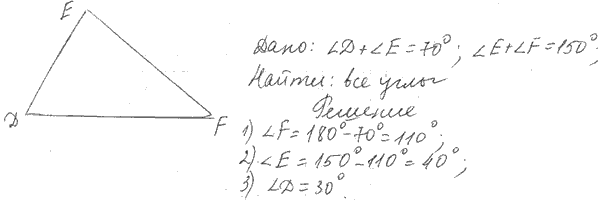 E
D
F
Дано: ∠D+∠E=70°; ∠E+∠F=150°;
Найти: все углы
Решение
1) ∠F=180°-70°=110°;
2) ∠E=150°-110°=40°;
3) ∠D=30°.